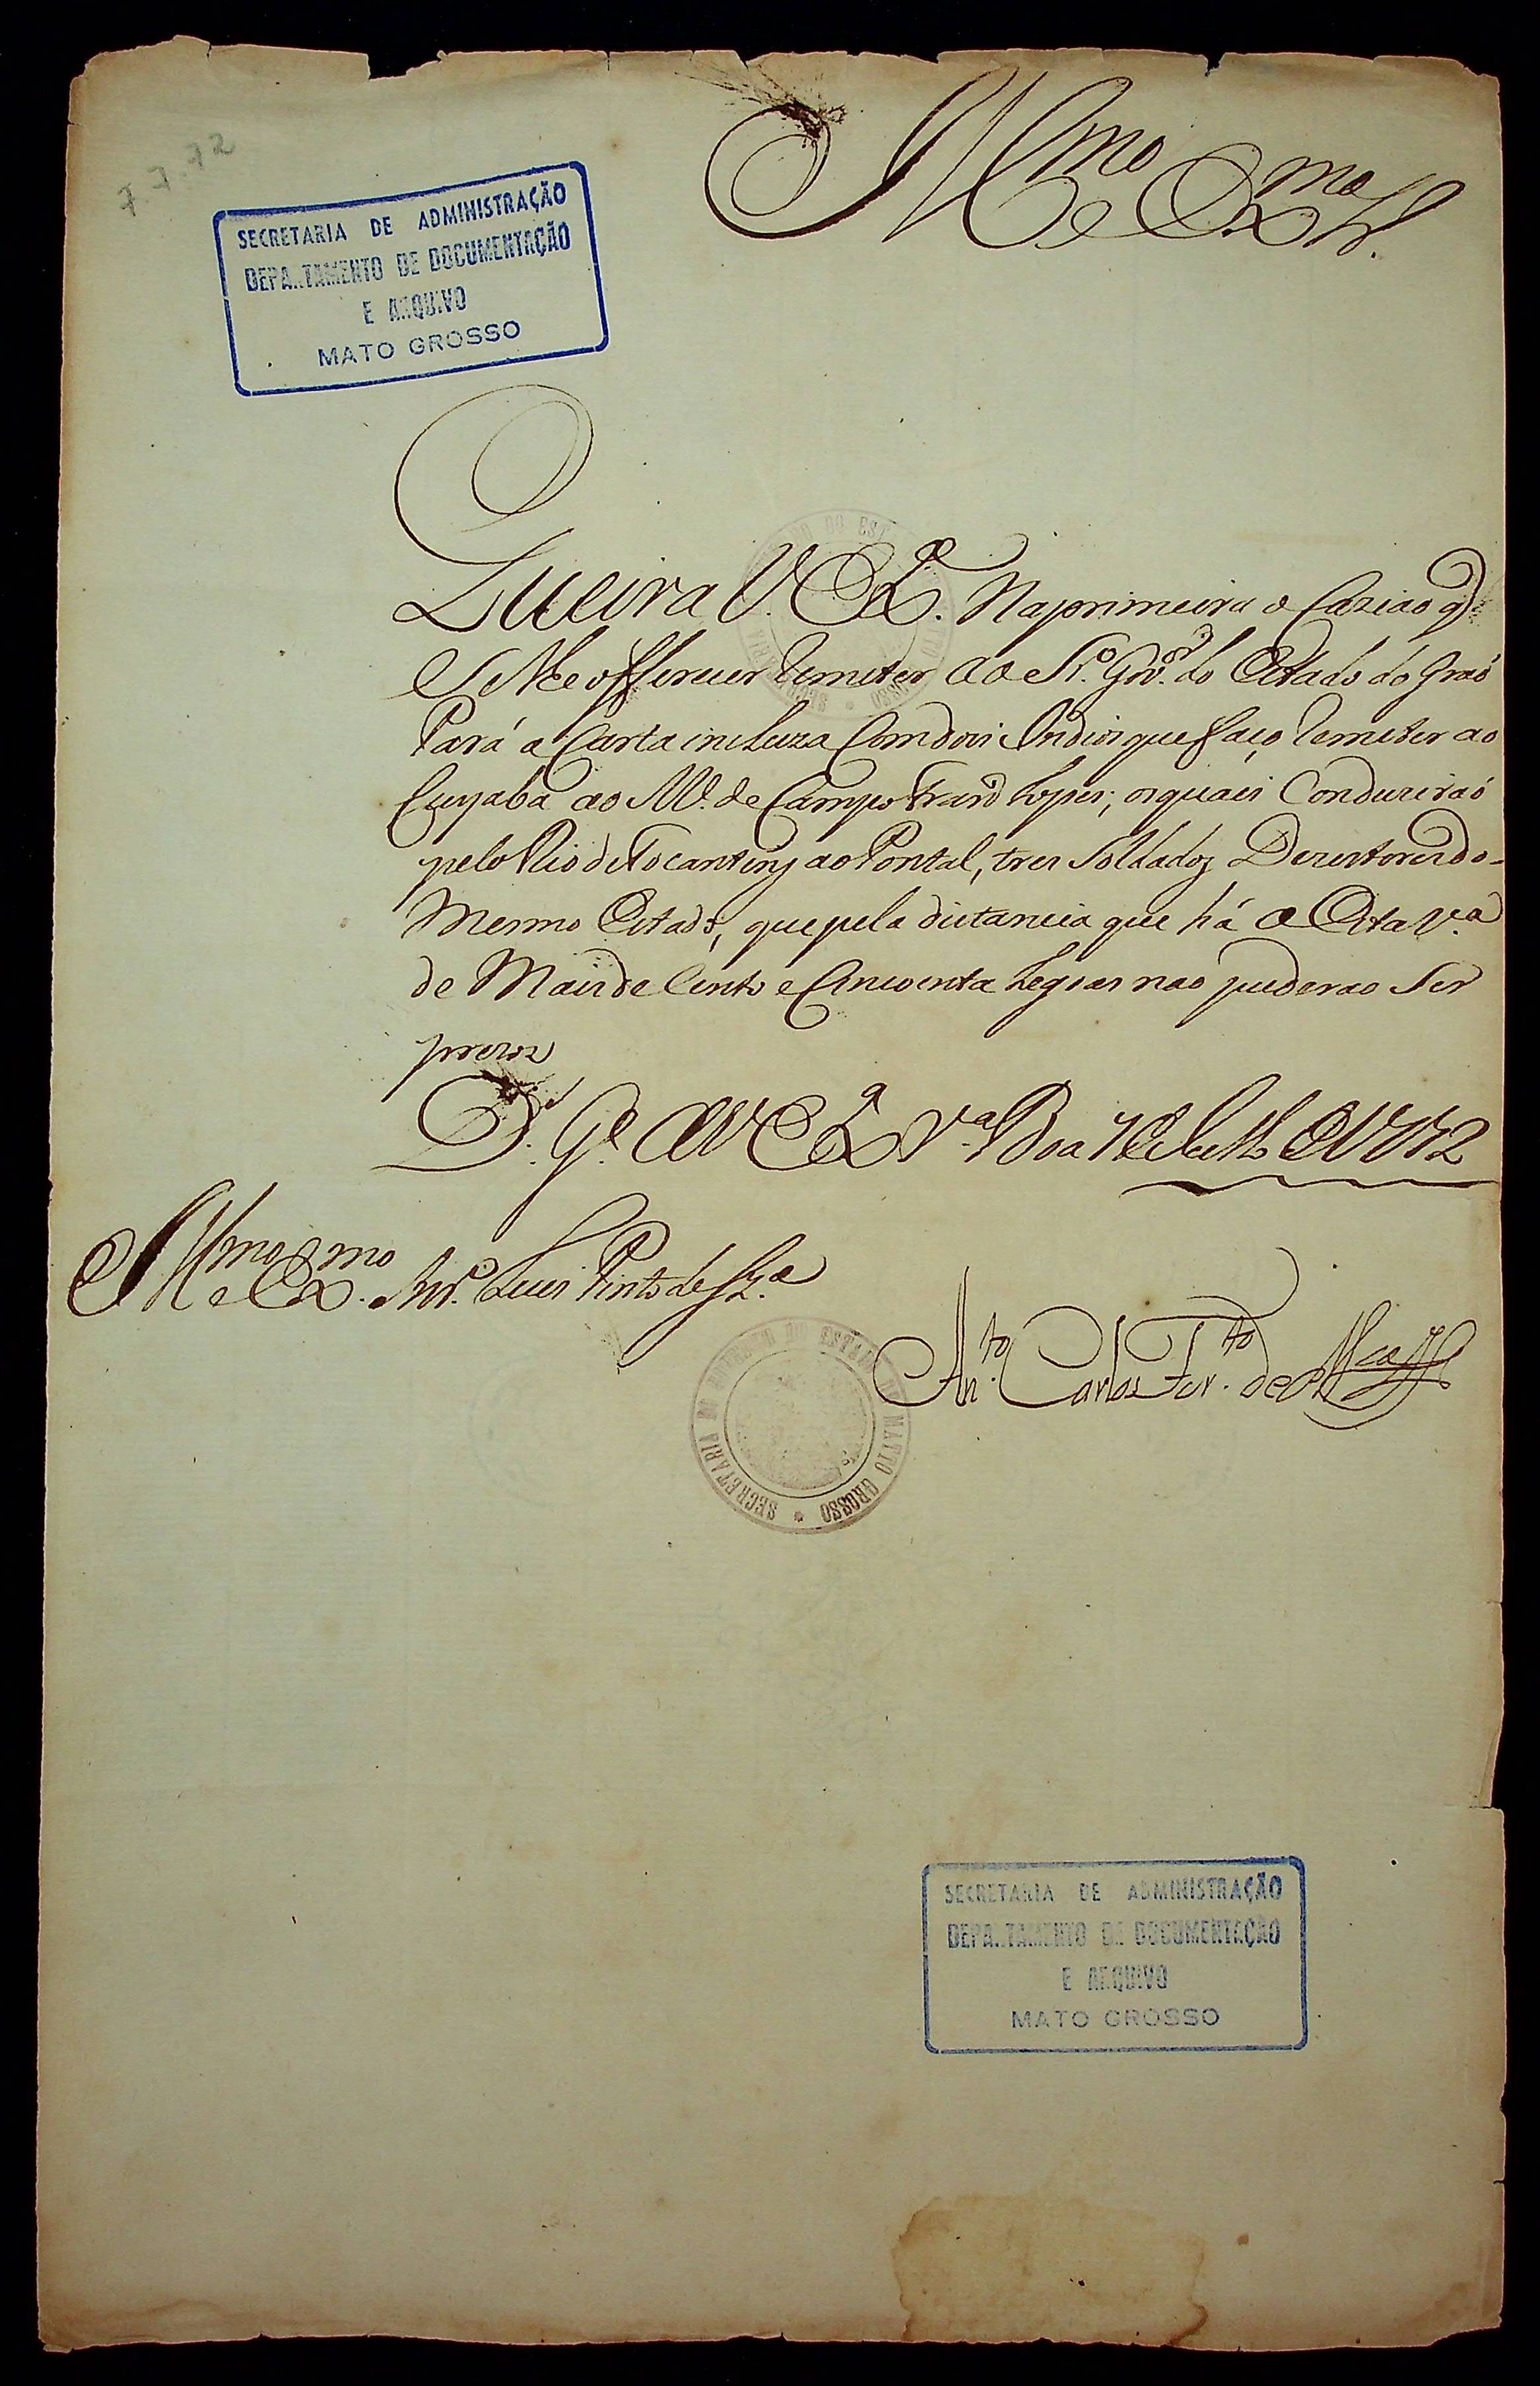 7.7.72
Illmo e Exmo Sr.
SECRETARIA DE ADMINISTRAÇÃO
DEPARTAMENTO DE DOCUMENTAÇÃO
E ARQUIVO
MATO GROSSO
Queira V. Exª. Na primeira o Caziaõ q̃
Se Me offerecer Remeter ao Sr. Govor. do Estado do Graõ
Pará a Carta incluza Com dois Indios que faço Remeter ao
Cuyabá ao Me. de Campo Franco Lopes; os quais Conduziraõ
pelo Rio de Tocantins ao Pontal, tres Soldados Dezertores do
Mesmo Estado, que pela distancia que há a Esta Vª
de Mais de Cento e Cincoenta Legoas nao puderao Ser
prezos
Ds. Gde. a V Exª Vª Boa 7 de Julho de 1772
Illmo e Exmo Snr. Luis Pinto de Sza
Anto. Carlos Furto. de
SECRETARIA DO GOVERNO DO ESTADO DE MATTO GROSSO
SECRETARIA DE ADMINISTRAÇÃO
DEPARTAMENTO DE DOCUMENTAÇÃO
E ARQUIVO
MATO GROSSO